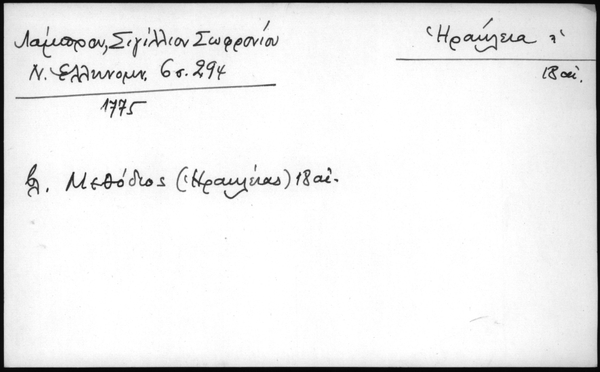 Λάμπρου, Σιγίλλιον Σωφρονίου
Ν. Ελληνομν. 6 σ. 294
1775
Ἡράκλεια
18 αἰ.
βλ. Μεθόδιος (Ἡρακλείας) 18 αἰ.